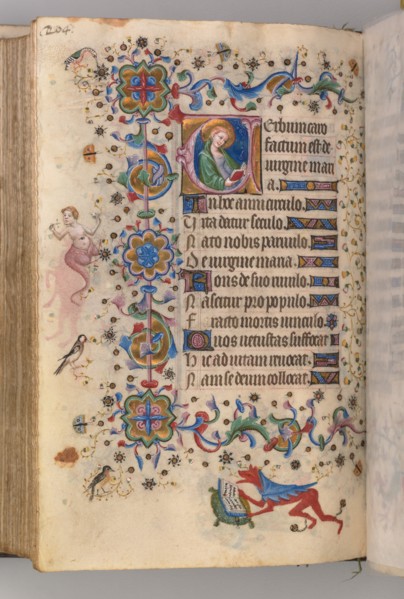 Verbum caro
factum est de
uirgine mari
a.
In hoc anni circulo.
Vita datur seculo.
Nato nobis paruulo.
De uirgine maria.
Fons de suo riuulo.
Nascitur pro populo.
Fracto mortis uinculo.
Quos uetustas suffocat
Hic ad uitam reuocat.
Nam se deum collocat.